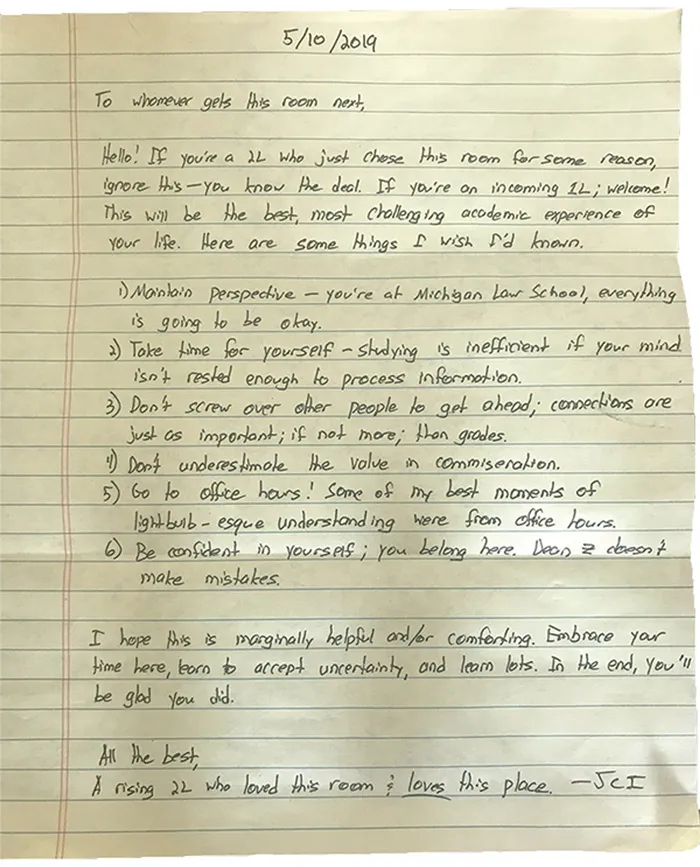 5/10/2019
To whomever gets this room next,
Hello! If you're a 2L who just chose this room for some reason,
ignore this – you know the deal. If you're an incoming 1L; welcome!
This will be the best, most challenging academic experience of
your life. Here are some things I wish I'd known.
1) Maintain perspective – you're at Michigan Law School, everything
is going to be okay.
2) Take time for yourself – studying is inefficient if your mind
isn't rested enough to process information.
3) Don't screw over other people to get ahead; connections are
just as important; if not more; than grades.
4) Don't underestimate the value in commiseration.
5) Go to office hours! Some of my best moments of
lightbulb-esque understanding were from office hours.
6) Be confident in yourself; you belong here. Dean Z doesn't
make mistakes.
I hope this is marginally helpful and/or comforting. Embrace your
time here, learn to accept uncertainty, and learn lots. In the end, you'll
be glad you did.
All the best,
A rising 2L who loved this room & loves this place. – JCI